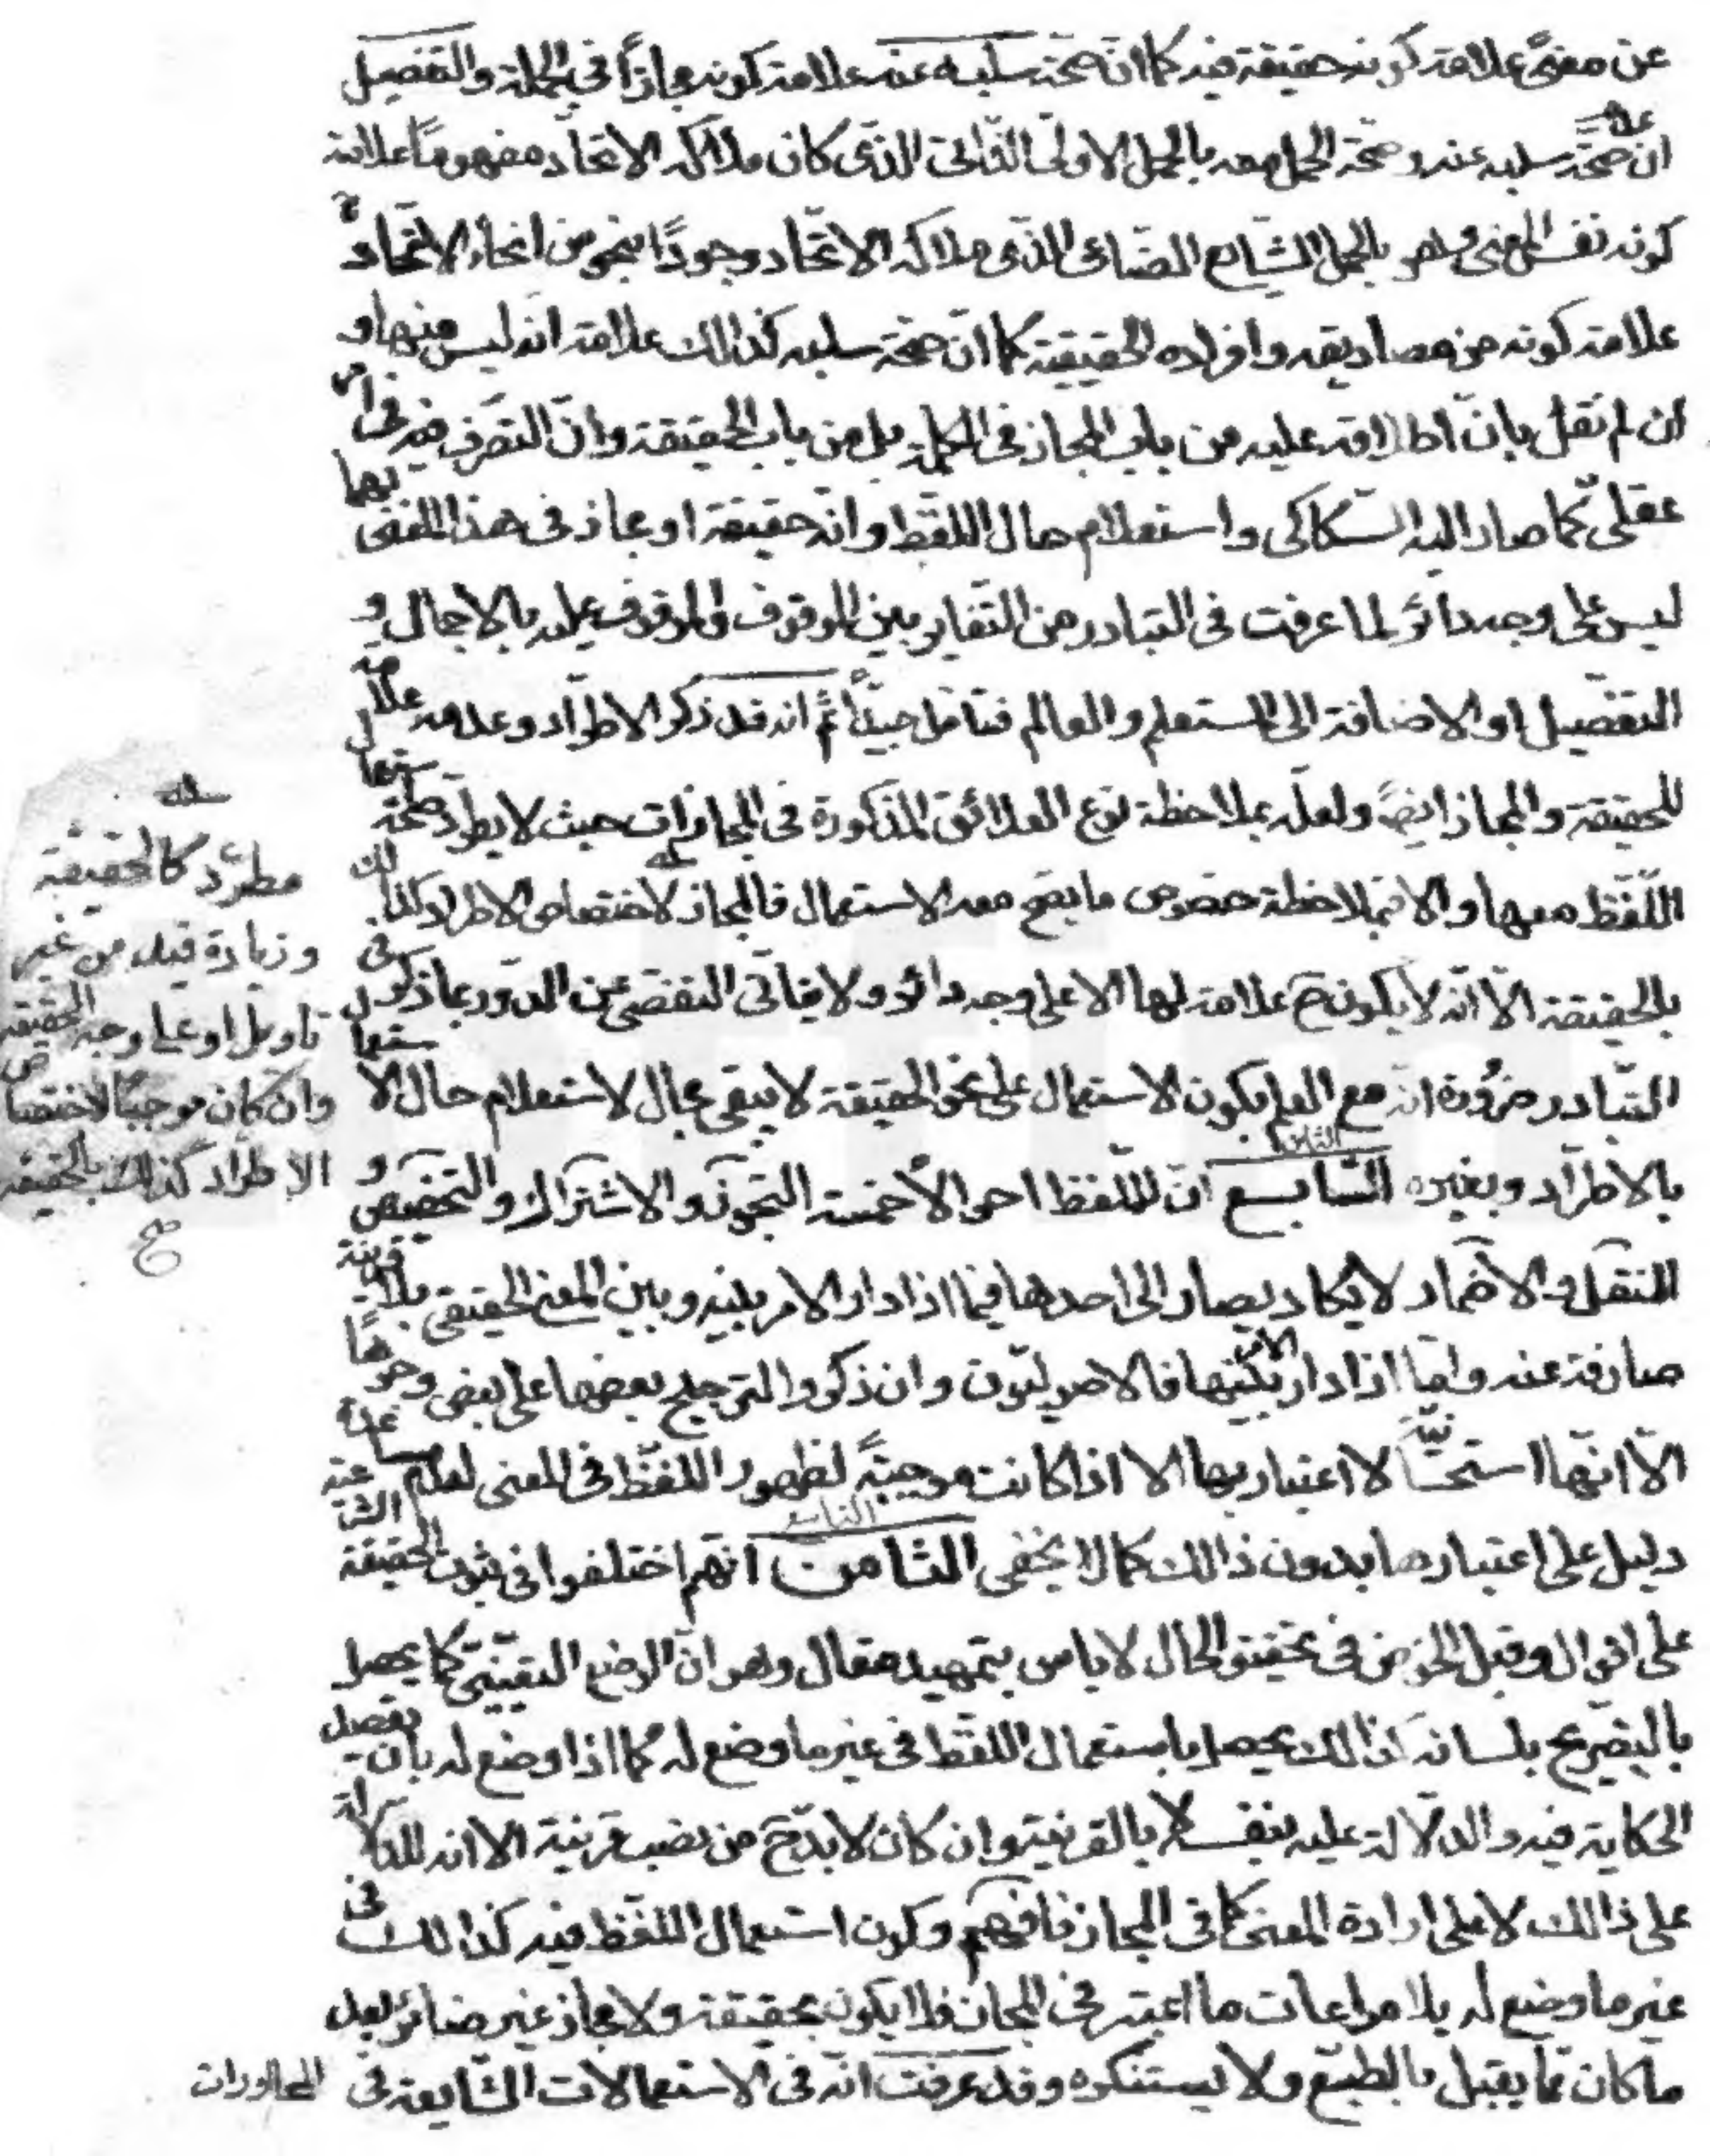 عن معنىً علامة كونه حقيقة فيه كما ان صحة سلبه عنه علامة كونه مجازاً فى الجملة والتفصيل
ان عدم صحّة سلبه عنه وصحّة الحمل معه بالحمل الاولىّ الذّاتىّ الذّى كان ملاكه الاتحاد مفهومًا علامة
كونه نفس المعنى وله بالحمل الشّايع الصّناعى الذى ملاكه الاتّحاد وجودًا بنحو من انحاء الاتّحاد
علامة كونه من مصاديقه وافراده الحقيقيّة كما انّ صحّة سلبه كذالك علامة انّه ليس منها و
ان لم نقل بانّ اطلاقه عليه من باب المجاز فى الكلمة بل من باب الحقيقة وانّ التصرّف فيه فى امر
عقلىّ كما صار اليه السّكاكى واستعلام حال اللّفظ وانّه حقيقة او مجاز فى هذا المعنى بهما
ليس على وجه دائر لما عرفت فى التبادر من التّغاير بين الموقوف والموقوف عليه بالاجمال و
التفصيل او الاضافة الى المستعلم والعالم فتامّل جيداً ثمّ انه قد ذكر الاطّراد وعدمه علامة
للحقيقة والمجاز ايضً ولعلّه بملاحظة نوع العلائق المذكورة فى المجازات حيث لا يطّرد صحّة استعمال
اللّفظ معها والا فبملاحظة خصوص ما يصحّ معه الاستعمال فالمجاز لاختصاص الاطراد كذالك
بالحقيقة الاّ انّه لا يكون ح علامة لها الا على وجه دائر ولا يتاتّى التفصّى عن الدّور بما ذكر فى
التّبادر ضرورة انّه مع العلم بكون الاستعمال على نحو الحقيقة لا يبقى مجال لاستعلام حال الاستعمال
بالاطّراد وبغيره السّابع الثامن انّ للّفظ احوالا خمسة التجوّز والاشتراك والتّخصيص و
النّقل والاضمار لا يكاد يصار الى احدها فيما اذا دار الامر بينه وبين المعنى الحقيقى بلا قرينة
صارفة عنه وامّا اذا دار الامر بينها فالاصوليّون وان ذكروا لترجيح بعضها على بعض وجوهًا
الاّ انّها استحسانيّة لا اعتبار بها الا اذا كانت موجبة لظهور اللّفظ فى المعنى لعدم مساعدة
دليل على اعتبارها بدون ذالك كما لا يخفى الثامن التاسع انّهم اختلفوا فى ثبوت الحقيقة الشّرعية
على اقوال وقبل الخوض فى تحقيق الحال لا باس بتمهيد مقال وهو انّ الوضع التّعيينىّ كما يحصل
بالتّصريح بانشائه كذالك يحصل باستعمال اللّفظ فى غير ما وضع له كما اذا وضع له بان يقصد
الحكاية فيه والدّلالة عليه بنفسه لا بالقرينة وان كان لا بدّ ح من نصب قرينة الا انه للدّلالة
على ذالك لا على ارادة المعنى كما فى المجاز فافهم وكون استعمال اللّفظ فيه كذالك فى
غير ما وضع له بلا مراعات ما اعتبر فى المجاز فلا يكون بحقيقة ولا مجاز غير ضائر بعد
ما كان ممّا يقبل بالطبّع ولا يستنكره وقد عرفت انّه فى الاستعمالات الشّايعة فى
المحاورات
مطّرد كالحقيقة
وزيادة قيد من غير
تاويل او على وجه الحقيقة
وان كان موجبًا لاختصاص
الاطّراد كذالك بالحقيقة
صح